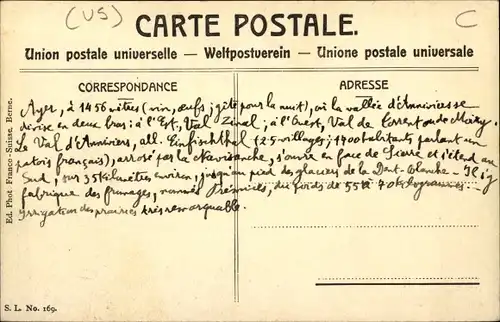 (US)
C
CARTE POSTALE.
Union postale universelle — Weltpostverein — Unione postale universale
CORRESPONDANCE
ADRESSE
Ayer, à 1456 mètres (vin, œufs; gîte pour la nuit), où la vallée d'Anniviers se
divise en deux bras: à l'Est, Val Zinal; à l'Ouest, Val de Torrent ou de Moiry.
Le Val d'Anniviers, all. Einfischthal (25 villages; 1700 habitants parlant un
patois français), arrosé par la Navisanche, s'ouvre en face de Sierre et s'étend au
Sud, sur 35 kilomètres environ, jusqu'au pied des glaciers de la Dent-Blanche - Il y
fabrique des fromages, nommés du poids de 5 à 70 kilogrammes
Irrigation des prairies très remarquable.
Ed. Phot. Franco-Suisse, Berne.
S. L. No. 169.